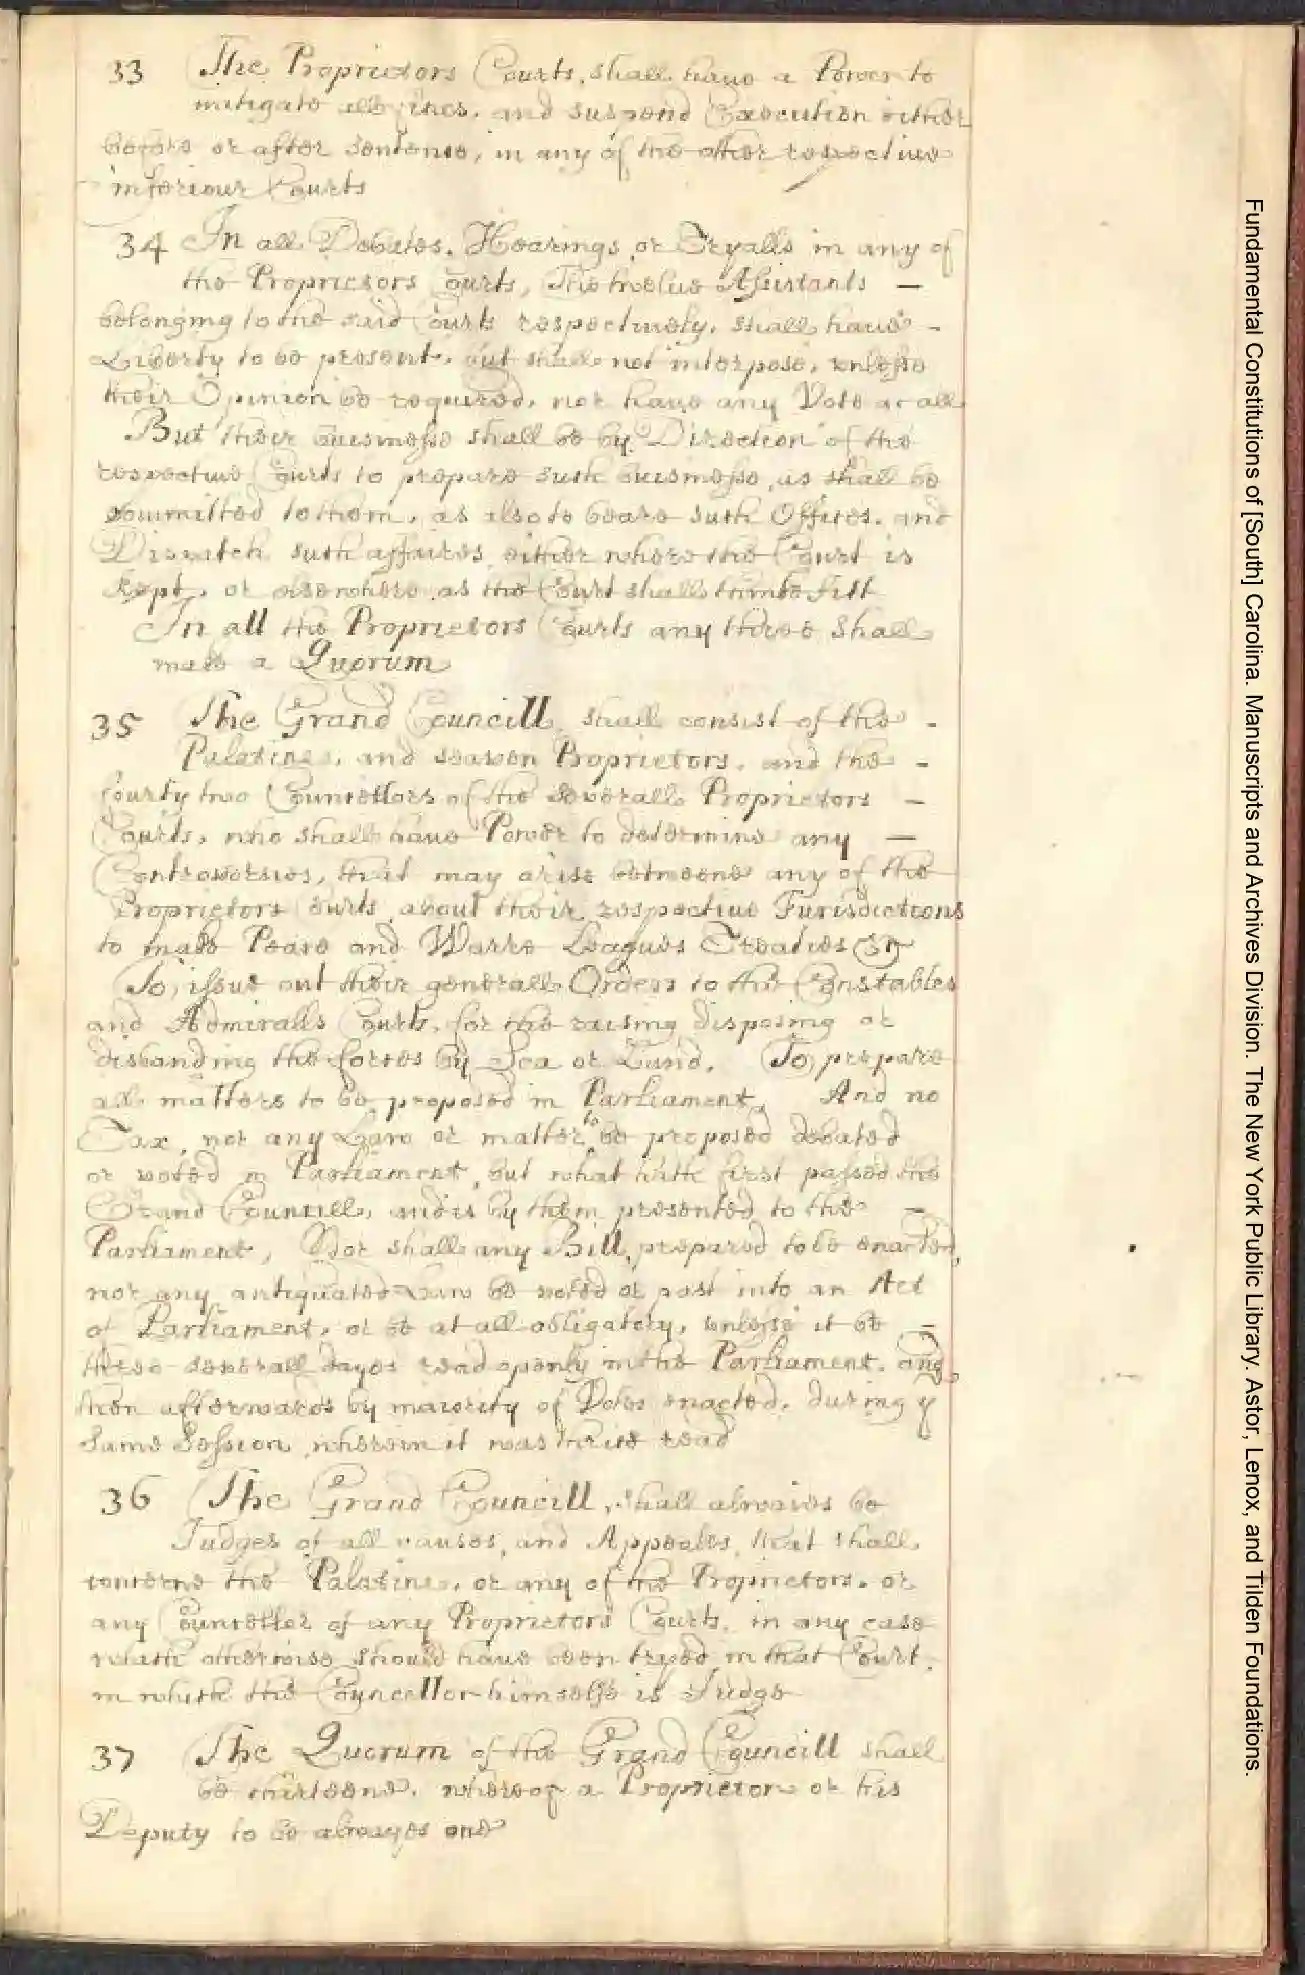 33 The Proprietors Courts, shall have a Power to
mitigate all fines, and suspend Execution either
before or after sentence, in any of the other respective
inferiour Courts
34 In all Debates, Hearings or Tryalls in any of
the Proprietors Courts, The twelve Assistants —
belonging to the said Courts respectively, shall have -
Liberty to be present, but shall not interpose, unlesse
their Opinion be required, nor have any Vote at all
But their buisinesse shall be by Direction of the
respective Courts to prepare such buisinesse, as shall be
committed to them, as also to beare such Offices, and
Dispatch such affaires either where the Court is
kept, or elsewhere as the Court shall thinke fitt
In all the Proprietors Courts any three shall
make a Quorum
35 The Grand Councill, shall consist of the -
Palatine, and seaven Proprietors, and the -
fourty two Councellors of the severall Proprietors —
Courts, who shall have Power to determine any —
Controversies, that may arise betweene any of the
Proprietors Courts about their respective Jurisdictions
to make Peace and Warre Leagues Treaties &c
To issue out their generall Orders to the Constables
and Admiralls Courts, for the raising disposing or
disbanding the forces by Sea or Land. To prepare
all matters to be proposed in Parliament, And no
Tax, nor any Law or matter to be proposed debated
or voted in Parliament, but what hath first passed the
Grand Councill, and is by them presented to the -
Parliament, Nor shall any Bill prepared to be enacted,
nor any antiquated Law be voted or past into an Act
of Parliament, or be at all obligatory, unlesse it be -
three severall dayes read openly in the Parliament, and
then afterwards by majority of Votes enacted, during ye
same Session wherein it was thrice read
36 The Grand Councill, shall alwaies be
Judges of all causes, and Appeales, that shall
concerne the Palatine, or any of the Proprietors, or
any Councellor of any Proprietors Courts, in any case
which otherwise should have been tryed in that Court,
in which the Councellor himselfe is Judge
37 The Quorum of the Grand Councill shall
be thirteene, whereof a Proprietor or his
Deputy to be alwayes one
Fundamental Constitutions of [South] Carolina. Manuscripts and Archives Division. The New York Public Library. Astor, Lenox, and Tilden Foundations.